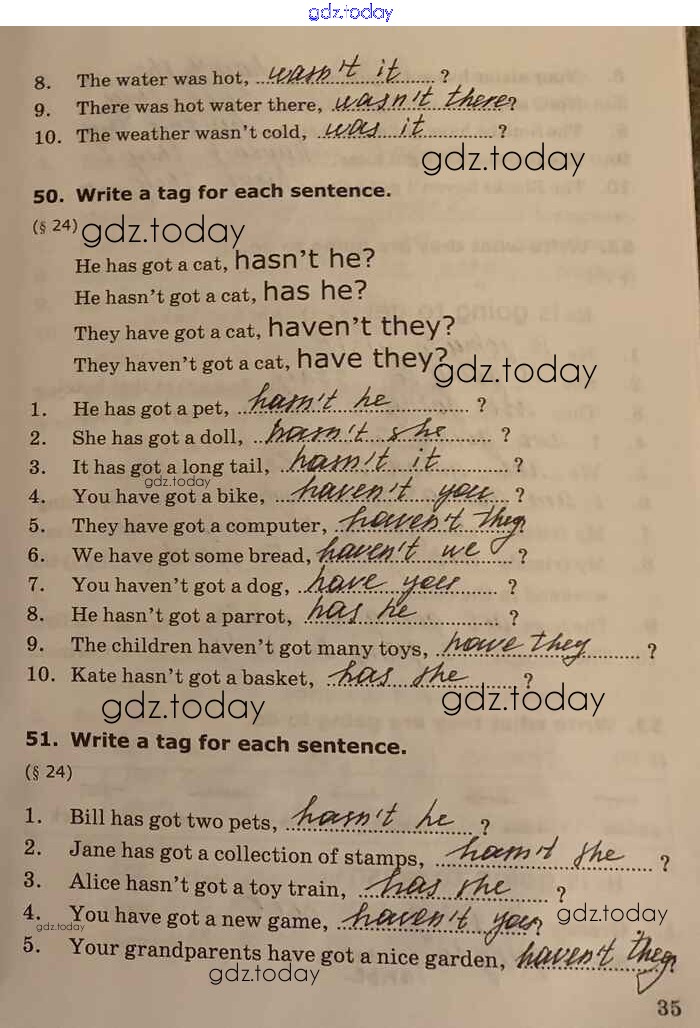 gdz.today
8. The water was hot, wasn't it ?
9. There was hot water there, wasn't there?
10. The weather wasn't cold, was it ?
gdz.today
50. Write a tag for each sentence.
(§ 24) gdz.today
He has got a cat, hasn't he?
He hasn't got a cat, has he?
They have got a cat, haven't they?
They haven't got a cat, have they?
gdz.today
1. He has got a pet, hasn't he ?
2. She has got a doll, hasn't she ?
3. It has got a long tail, hasn't it ?
gdz.today
4. You have got a bike, haven't you ?
5. They have got a computer, haven't they?
6. We have got some bread, haven't we ?
7. You haven't got a dog, have you ?
8. He hasn't got a parrot, has he ?
9. The children haven't got many toys, have they ?
10. Kate hasn't got a basket, has she ?
gdz.today gdz.today
51. Write a tag for each sentence.
(§ 24)
1. Bill has got two pets, hasn't he ?
2. Jane has got a collection of stamps, hasn't she ?
3. Alice hasn't got a toy train, has she ?
4. You have got a new game, haven't you?
gdz.today gdz.today
5. Your grandparents have got a nice garden, haven't they?
gdz.today
35